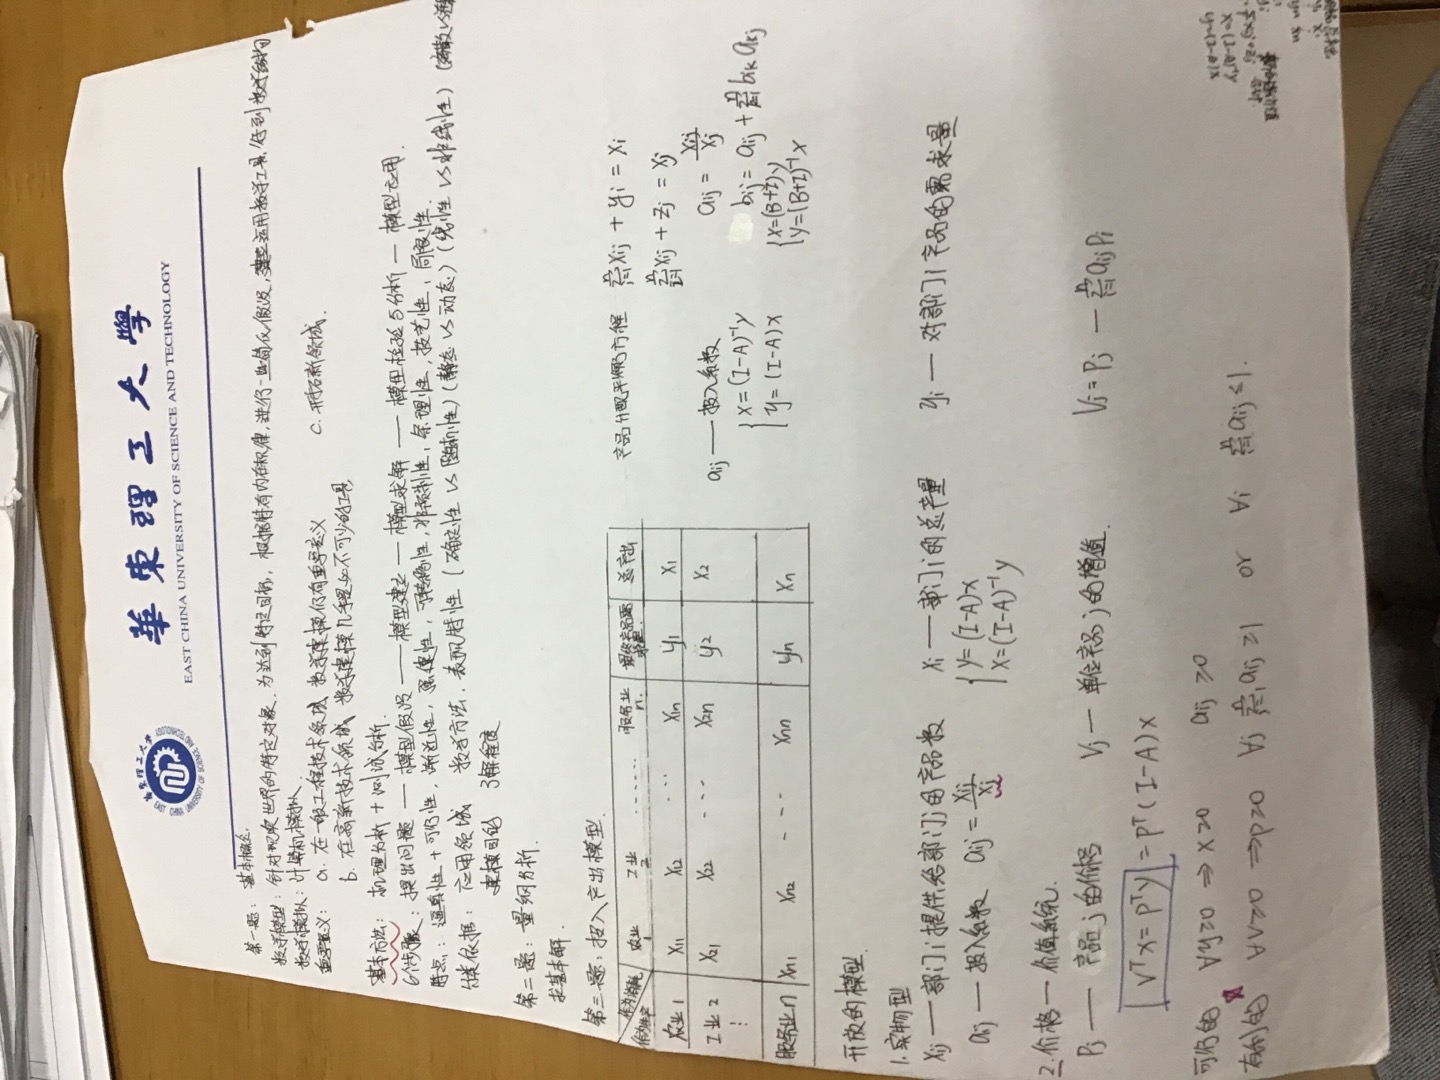 華東理工大學
EAST CHINA UNIVERSITY OF SCIENCE AND TECHNOLOGY
第一题: 基本概念.
数学模型: 针对现实世界的特定对象, 为达到特定目标, 根据特有内在规律, 进行一些简化假设, 运用数学工具, 得到数学结构
数学模拟: 计算机模拟.
重要意义: a. 在一般工程技术领域 数学建模仍有重要意义 c. 开拓新领域.
b. 在高新技术领域 数学建模几乎是必不可少的工具
基本方法: 机理分析 + 测试分析.
6个步骤: 提出问题 — 模型假设 — 模型建立 — 模型求解 — 模型检验与分析 — 模型应用.
特点: 逼真性 + 可行性, 渐近性, 强健性, 可转移性, 非预制性, 条理性, 技艺性, 局限性.
分类依据: 应用领域 数学方法. 表现特性 (确定性 VS 随机性) (静态 VS 动态) (线性 VS 非线性) (离散 VS 连
建模目的 了解程度
第二题: 量纲分析.
求基本解.
第三题: 投入产出模型.
农业 1 工业 2 ...... 服务业 n. 最终产品需求量. 总产出
农业 1 x11 x12 ... x1n y1 x1
工业 2 x21 x22 --- x2n y2 x2
⋮
服务业 n xn1 xn2 --- xnn yn xn
产品分配平衡方程 ∑xij + yi = xi
∑xij + zj = xj
aij — 投入系数 aij = xij/xj
{x = (I-A)⁻¹y bij = aij + ∑bik akj
{y = (I-A)x {x=(B+I)y
{y=(B+I)⁻¹x
开放的模型.
1. 实物型
xij — 部门i提供给部门j的产品数 xi — 部门i的总产量 yi — 对部门i产品的需求量
aij — 投入系数 aij = xij/xj {y = (I-A)x
{x = (I-A)⁻¹y
2. 价格 — 价值系统.
Pj — 产品j的价格 Vj — 单位产品j的增值. Vj = Pj — ∑aij Pi
VᵀX = Pᵀy = Pᵀ(I-A)x
可行的 ∀y≥0 ⇒ x≥0 aij ≥0
有利的 ∀v≥0 ⇒ p≥0 ∀j ∑aij ≥1 or ∀i ∑aij ≤1.